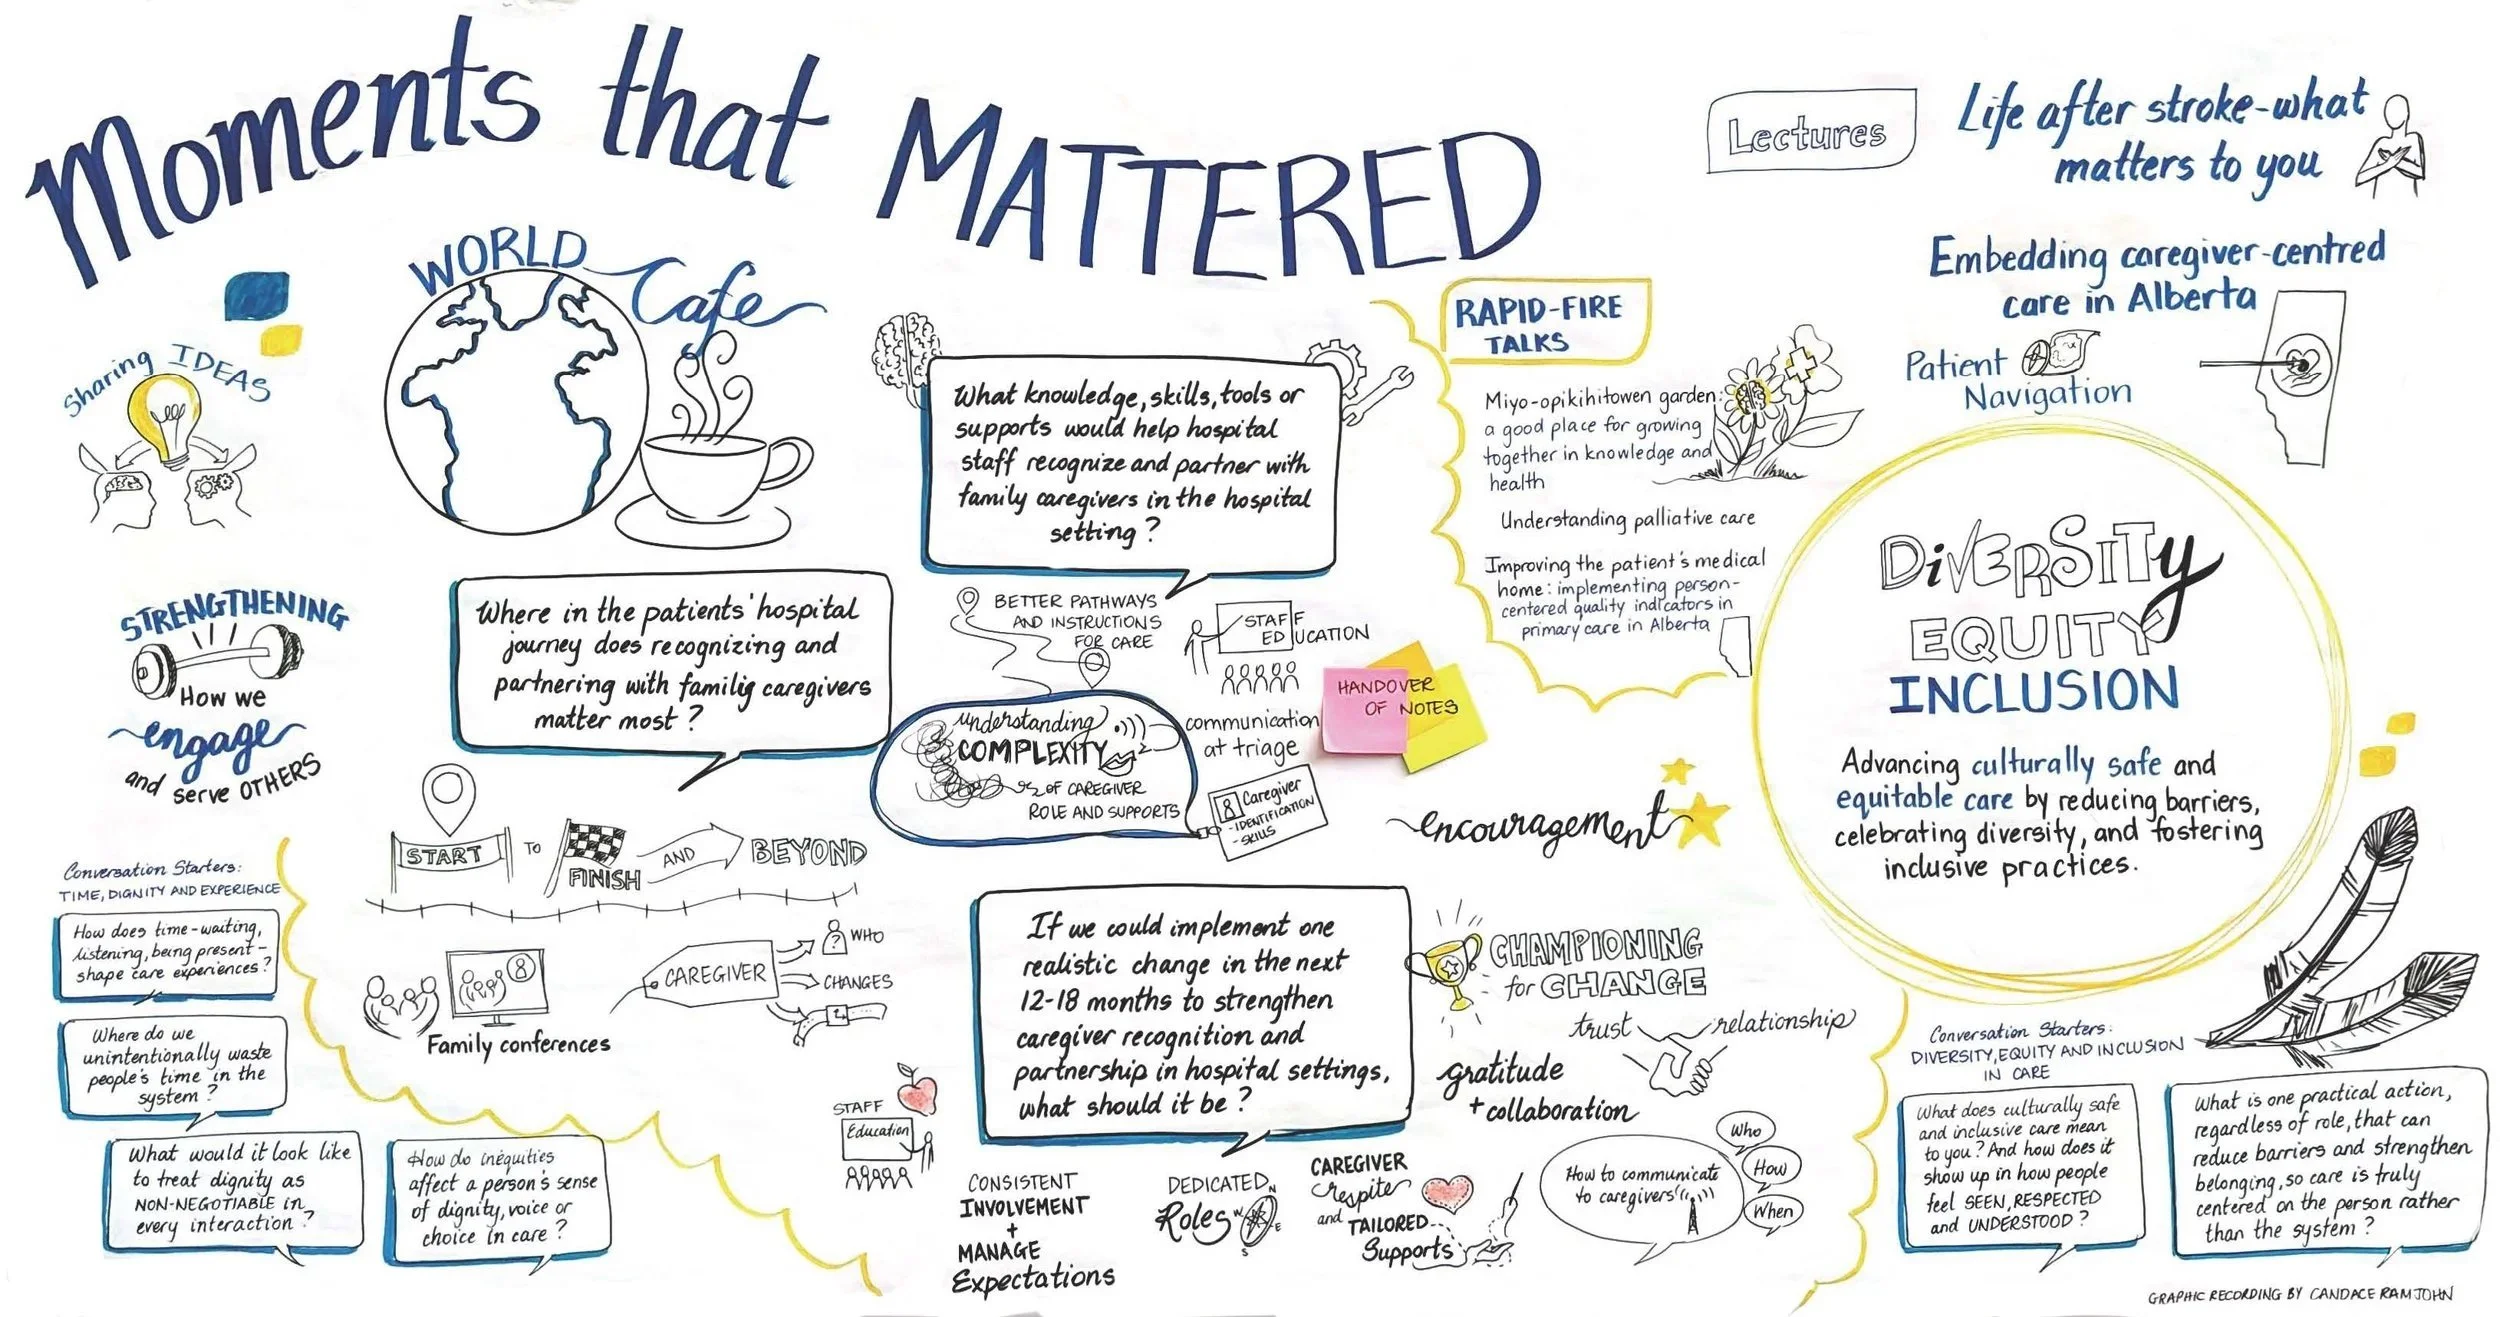 Moments that MATTERED
Sharing IDEAS
WORLD
Cafe
STRENGTHENING
How we
engage
and serve OTHERS
What knowledge, skills, tools or
supports would help hospital
staff recognize and partner with
family caregivers in the hospital
setting?
Where in the patients' hospital
journey does recognizing and
partnering with family caregivers
matter most?
START
TO
FINISH
AND
BEYOND
Family conferences
CAREGIVER
WHO
CHANGES
BETTER PATHWAYS
AND INSTRUCTIONS
FOR CARE
STAFF
EDUCATION
understanding
COMPLEXITY
OF CAREGIVER
ROLE AND SUPPORTS
communication
at triage
HANDOVER
OF NOTES
Caregiver
- IDENTIFICATION
- SKILLS
If we could implement one
realistic change in the next
12-18 months to strengthen
caregiver recognition and
partnership in hospital settings,
what should it be?
STAFF
Education
CONSISTENT
INVOLVEMENT
+
MANAGE
Expectations
DEDICATED
Roles
N
W
E
S
CAREGIVER
respite
and TAILORED
Supports
Conversation Starters:
TIME, DIGNITY AND EXPERIENCE
How does time-waiting,
listening, being present-
shape care experiences?
Where do we
unintentionally waste
people's time in the
system?
What would it look like
to treat dignity as
NON-NEGOTIABLE in
every interaction?
How do inequities
affect a person's sense
of dignity, voice or
choice in care?
RAPID-FIRE
TALKS
Miyo-opikihitowen garden:
a good place for growing
together in knowledge and
health
Understanding palliative care
Improving the patient's medical
home: implementing person-
centered quality indicators in
primary care in Alberta
encouragement
CHAMPIONING
for CHANGE
trust
relationship
gratitude
+ collaboration
How to communicate
to caregivers
Who
How
When
Lectures
Life after stroke-what
matters to you
Embedding caregiver-centred
care in Alberta
Patient
Navigation
DiVERSITy
EQUITY
INCLUSION
Advancing culturally safe and
equitable care by reducing barriers,
celebrating diversity, and fostering
inclusive practices.
Conversation Starters:
DIVERSITY, EQUITY AND INCLUSION
IN CARE
What does culturally safe
and inclusive care mean
to you? And how does it
show up in how people
feel SEEN, RESPECTED
and UNDERSTOOD?
What is one practical action,
regardless of role, that can
reduce barriers and strengthen
belonging, so care is truly
centered on the person rather
than the system?
GRAPHIC RECORDING BY CANDACE RAMJOHN